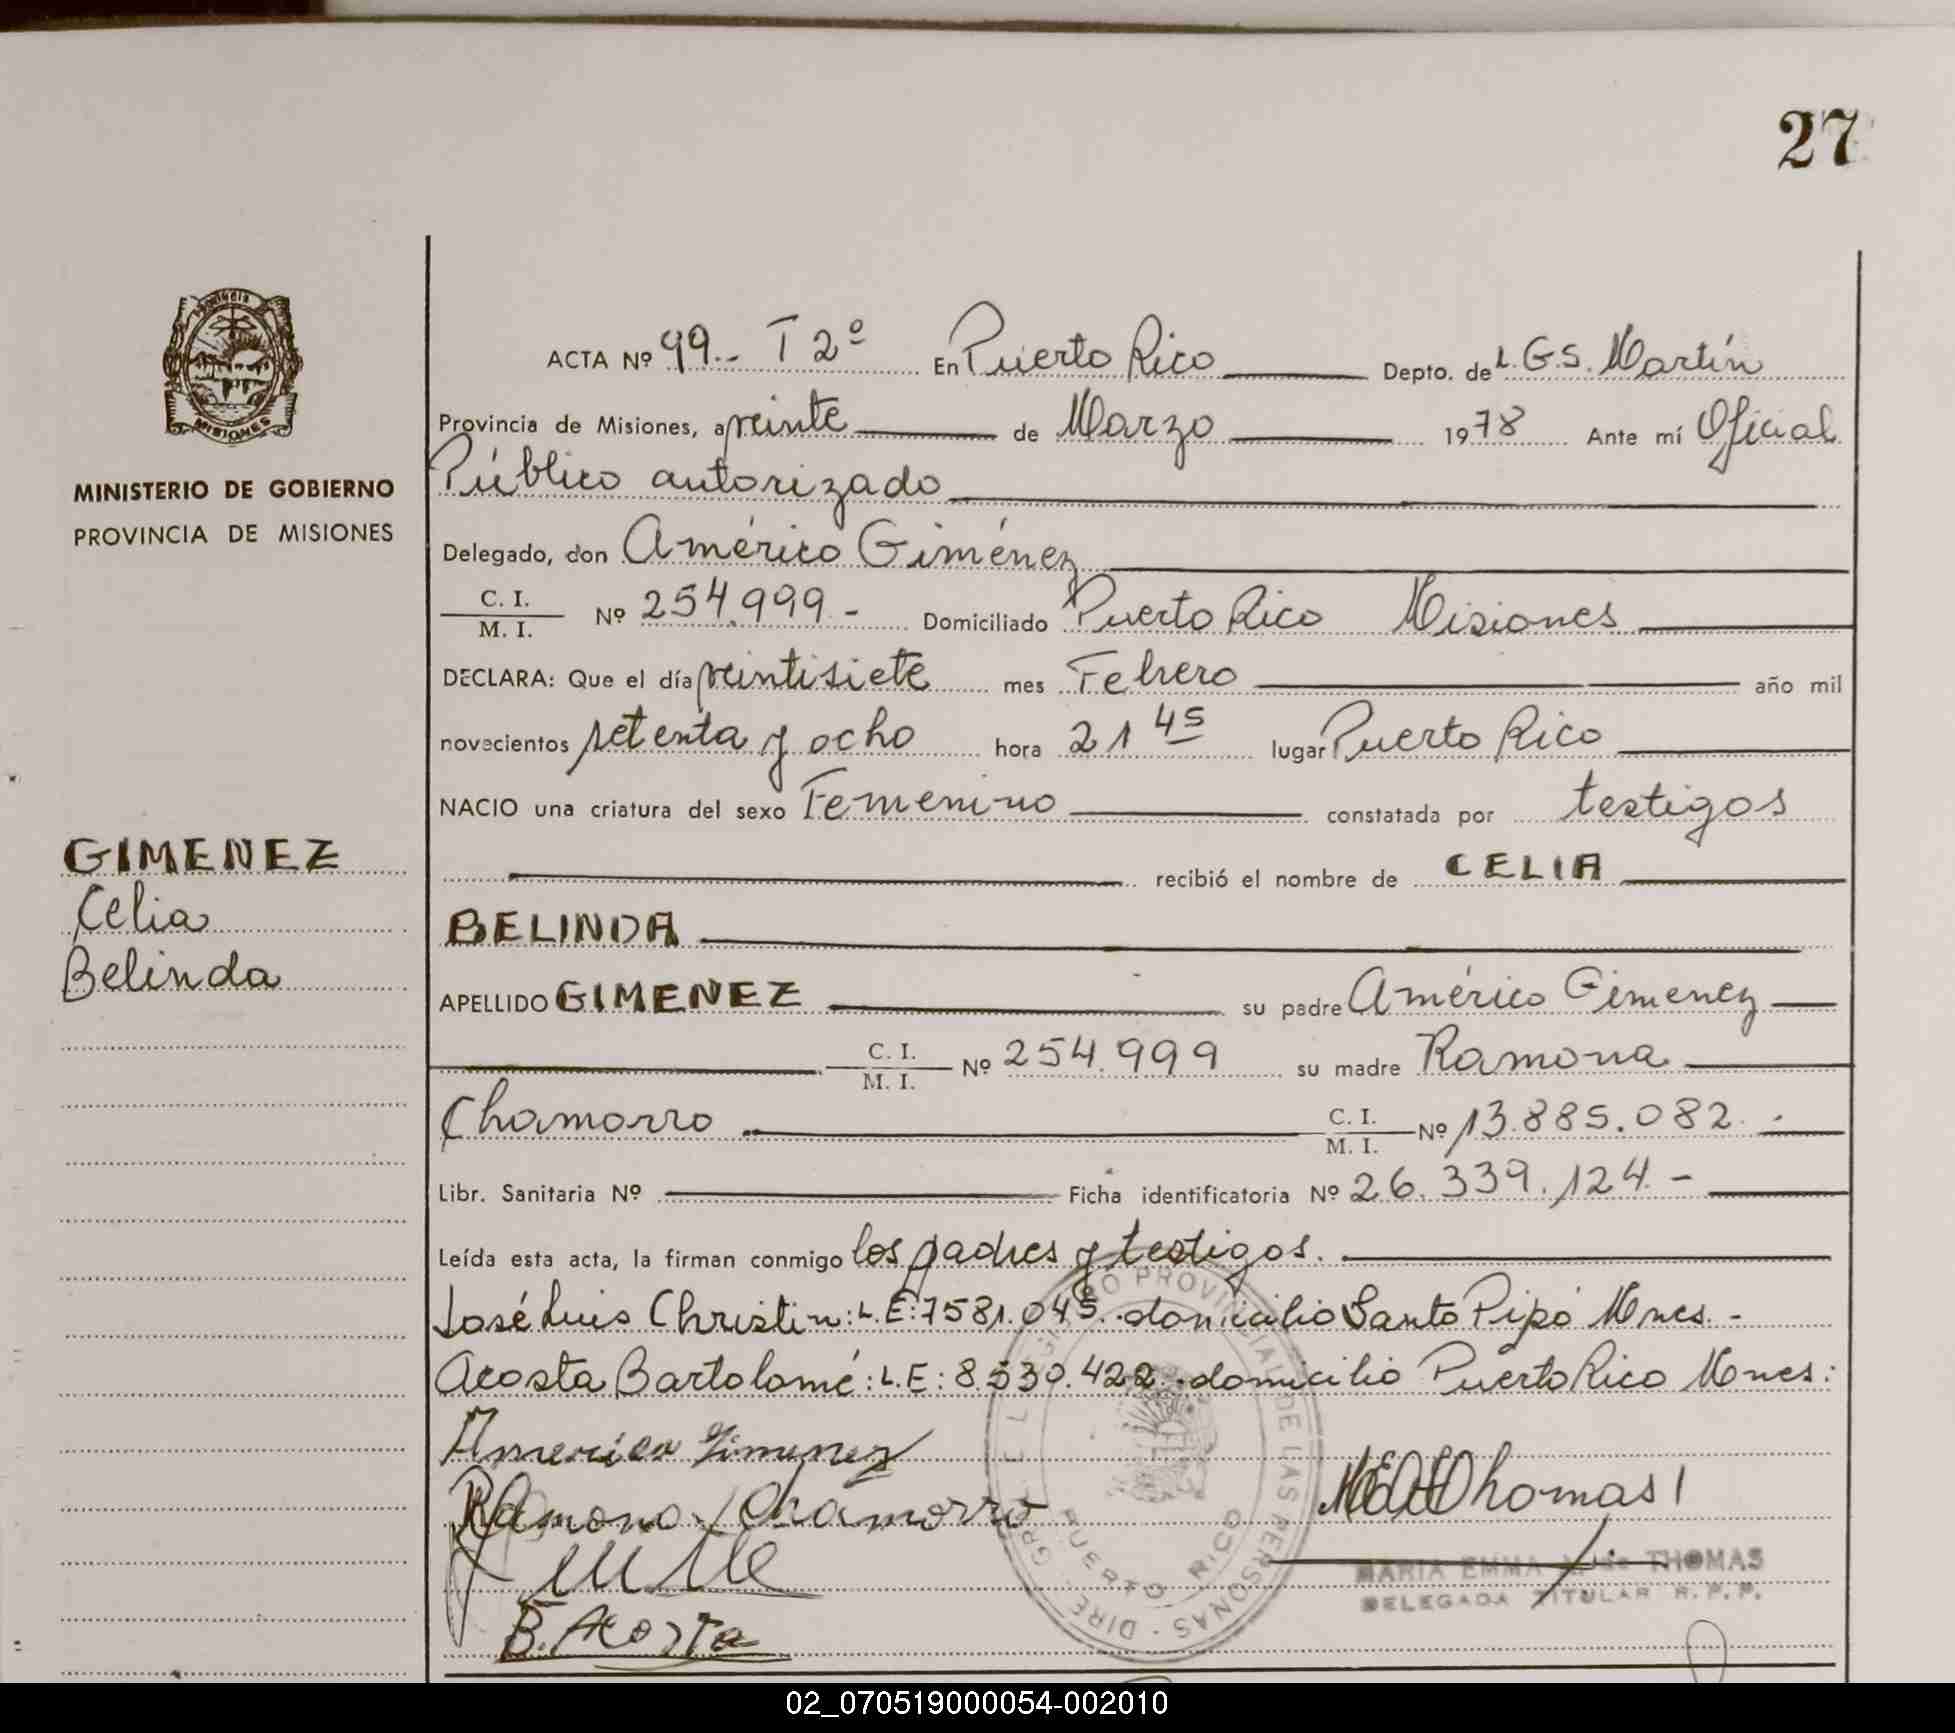 27
ACTA Nº 99.- T 2º En Puerto Rico Depto. de L.G.S. Martín
Provincia de Misiones, a veinte de Marzo 1978 Ante mí Oficial
Público autorizado
Delegado, don Américo Giménez
C. I. / M. I. Nº 254.999- Domiciliado Puerto Rico Misiones
DECLARA: Que el día veintisiete mes Febrero año mil
novecientos setenta y ocho hora 21 45 lugar Puerto Rico
NACIO una criatura del sexo Femenino constatada por testigos
recibió el nombre de CELIA
BELINDA
APELLIDO GIMENEZ su padre Américo Gimenez
C. I. / M. I. Nº 254.999 su madre Ramona
Chamorro C. I. / M. I. Nº 13.885.082.-
Libr. Sanitaria Nº Ficha identificatoria Nº 26.339.124.-
Leída esta acta, la firman conmigo los padres y testigos.
José Luis Christin: L.E: 7581.045. domicilio Santo Pipó Mnes.-
Acosta Bartolomé: L.E: 8.530.422. domicilio Puerto Rico Mnes:
Americo Gimenez
Ramona Chamorro
B. Acosta
Thomas
MARIA EMMA THOMAS
DELEGADA TITULAR R.P.P.
PROVINCIAL DE LAS PERSONAS - DIRE
PUERTO RICO
Provincia
MISIONES
MINISTERIO DE GOBIERNO
PROVINCIA DE MISIONES
GIMENEZ
Celia
Belinda
02_070519000054-002010